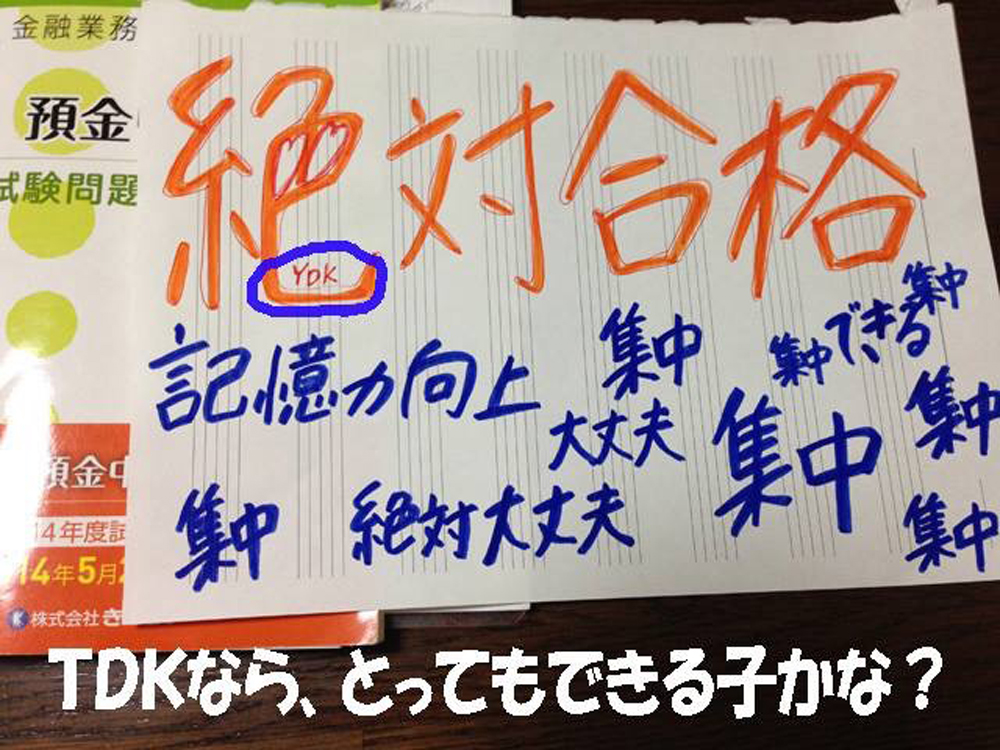 金融業務
預金
試験問題
絶対合格
YDK
記憶力向上
集中
集中
できる
集中
大丈夫
集中
集中
集中
絶対大丈夫
集中
預金中
14年度試
14年5月2
株式会社き
TDKなら、とってもできる子かな？